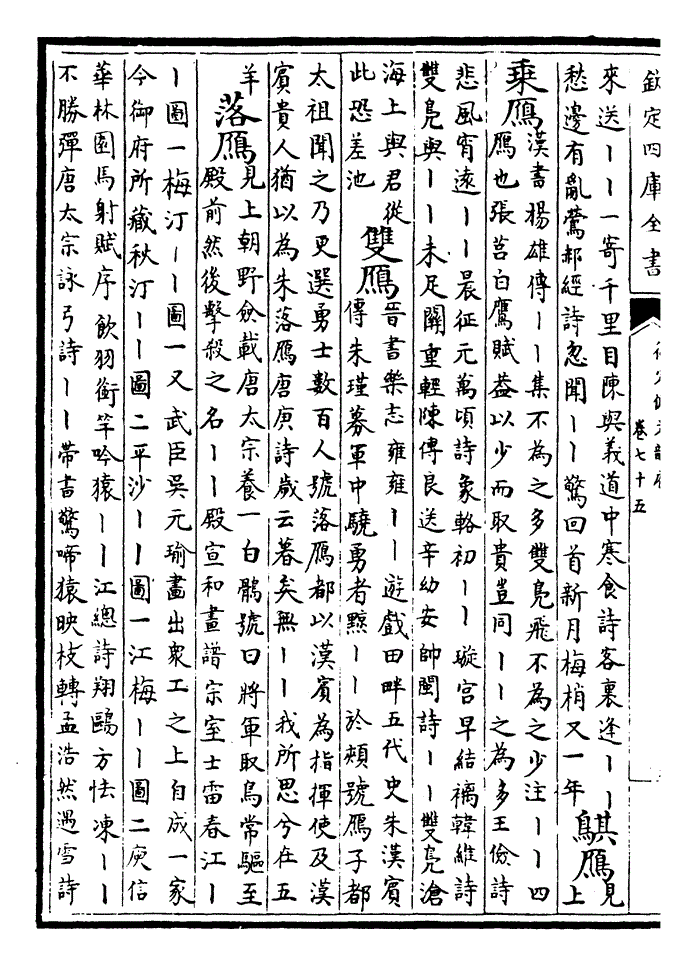 欽定四庫全書
卷七十五
來送丨丨一寄千里目陳與義道中寒食詩客裏逢丨丨
愁邊有亂鶯郝經詩忽聞丨丨驚回首新月梅梢又一年
鶀鴈見上
乘鴈漢書楊雄傳丨丨集不為之多雙鳧飛不為之少注丨丨四
鴈也張莒白鷹賦益以少而取貴豈同丨丨之為多王儉詩
悲風宵遠丨丨晨征元萬頃詩象輅初丨丨璇宮早結褵韓維詩
雙鳧與丨丨未足關重輕陳傅良送辛幼安帥閩詩丨丨雙鳧滄
海上與君從
此恐差池
雙鴈晉書樂志雍雍丨丨遊戲田畔五代史朱漢賓
傳朱瑾募軍中驍勇者黥丨丨於頰號鴈子都
太祖聞之乃更選勇士數百人號落鴈都以漢賓為指揮使及漢
賓貴人猶以為朱落鴈唐庚詩歲云暮矣無丨丨我所思兮在五
羊
落鴈見上朝野僉載唐太宗養一白鶻號曰將軍取鳥常驅至
殿前然後擊殺之名丨丨殿宣和畫譜宗室士雷春江丨
丨圖一梅汀丨丨圖一又武臣吳元瑜畫出衆工之上自成一家
今御府所藏秋汀丨丨圖二平沙丨丨圖一江梅丨丨圖二庾信
華林園馬射賦序飲羽銜竿吟猿丨丨江總詩翔鷗方怯凍丨丨
不勝彈唐太宗詠弓詩丨丨帶書驚啼猿映枝轉孟浩然遇雪詩